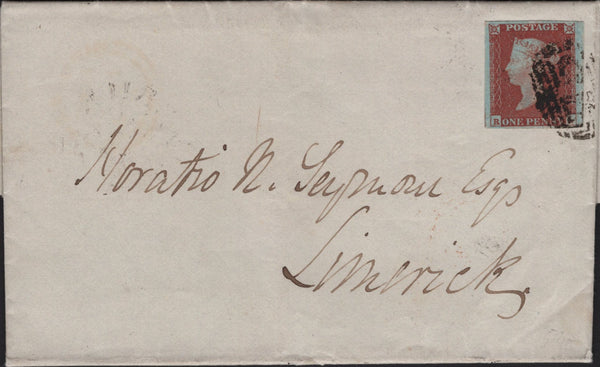 POSTAGE
ONE PEN
Horatio N. Seymour Esqr
Limerick